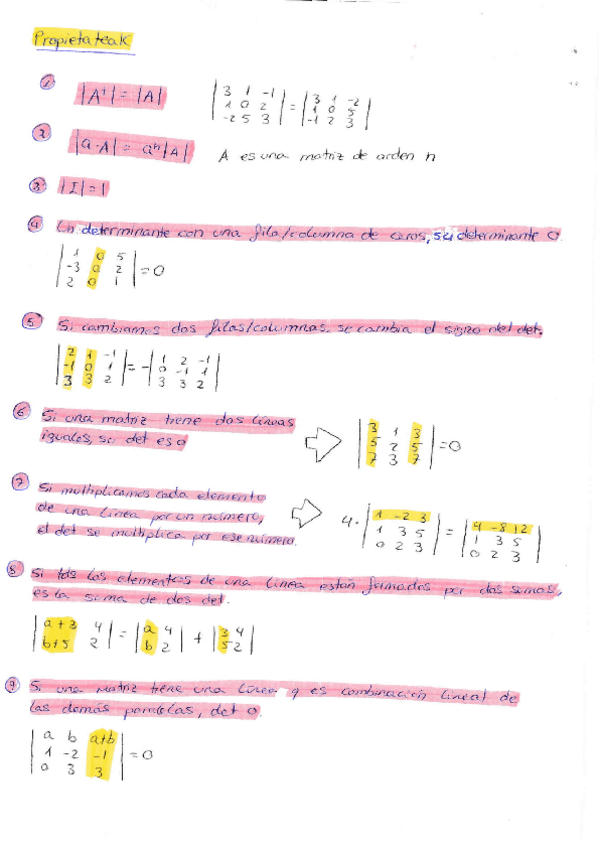 Propietateak
1 |Aᵗ| = |A| |3 1 -1| = |3 1 -2|
|1 0 2| |1 0 5|
|-2 5 3| |-1 2 3|
2 |a·A| = aⁿ|A| A es una matriz de orden n
3 |I| = 1
4 Un determinante con una fila/columna de ceros, su determinante 0.
|1 0 5|
|-3 0 2| = 0
|2 0 1|
5 Si cambiamos dos filas/columnas, se cambia el signo del det.
|2 1 -1| |1 2 -1|
|-1 0 1| = - |0 -1 1|
|3 3 2| |3 3 2|
6 Si una matriz tiene dos líneas
iguales, su det es 0
|3 1 3|
|5 2 5| = 0
|7 3 7|
7 Si multiplicamos cada elemento
de una línea por un número,
el det se multiplica por ese número.
4· |1 -2 3| = |4 -8 12|
|1 3 5| |1 3 5|
|0 2 3| |0 2 3|
8 Si tds los elementos de una línea están formados por dos sumas,
es la suma de dos det.
|a+3 4| = |a 4| + |3 4|
|b+5 2| |b 2| |5 2|
9 Si una matriz tiene una línea q es combinación lineal de
las demás paralelas, det 0.
|a b a+b|
|1 -2 -1| = 0
|0 3 3|